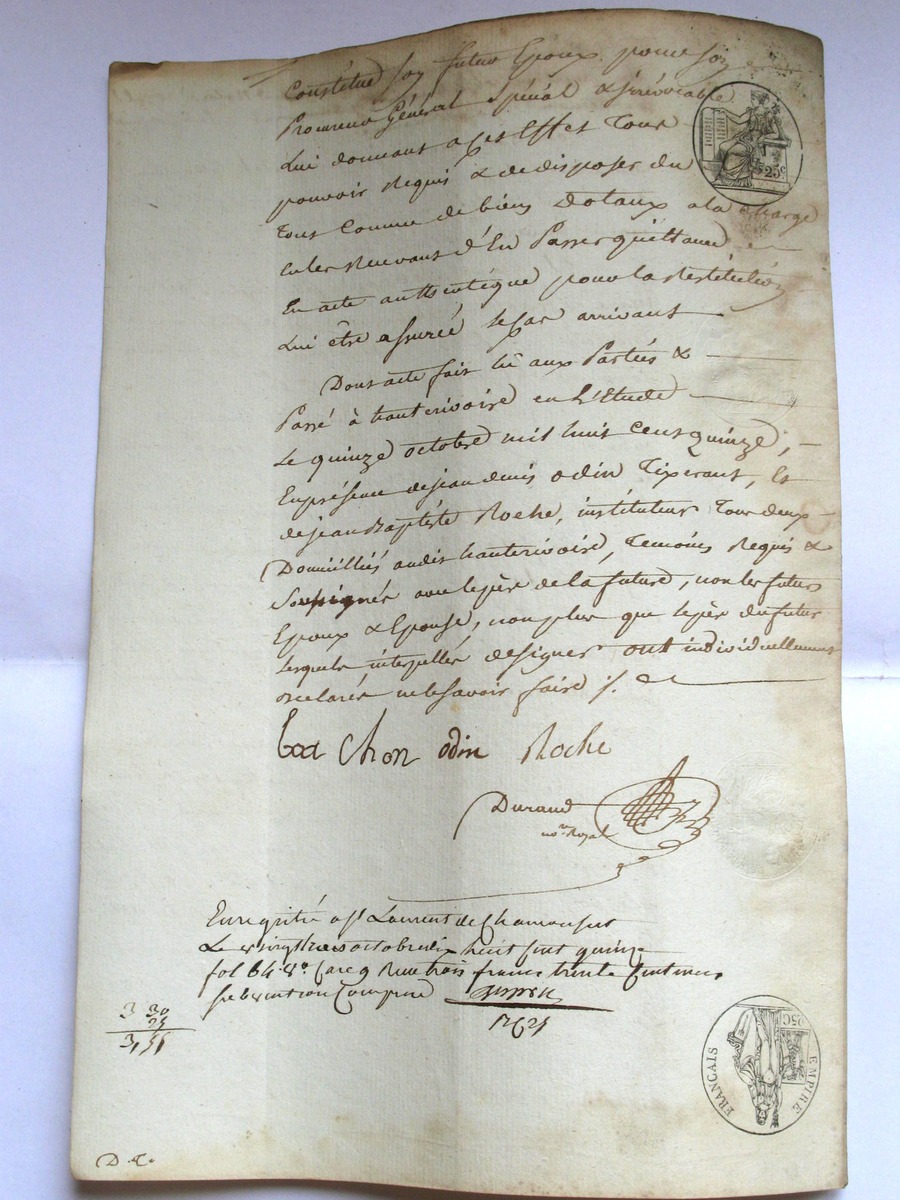 Constitue son futur Epoux pour son
Procureur Général Spécial & irrévocable
Lui donnant a cet Effet Tous
pouvoir Requis & de disposer du
Tout Comme de biens dotaux a la charge
en les Recevant d'En Passer quittance
En acte authentique pour la Restitution
Lui être assurée le cas arrivant
Dont acte fait lû aux Parties &
Passé à hauterivoire en L'Etude
Le quinze octobre mil huit Cent quinze,
En présence de jean denis odin Tixerant, Et
de jean Baptiste Roche, instituteur Tous deux
Domiciliés audit hauterivoire, Temoins Requis &
Soussignés avec le père de la future, non les futurs
Epoux & Epouse, non plus que le père du futur
Lesquels interpellés de signer ont individuellement
Declarés ne le savoir faire
bachon odin Roche
Durand
no.re Royal
Enregistré a St Laurent de Chamousset
Le vingt trois octobre huit cent quinze
fol 64 v.o Case 9 Recu trois francs trente Centimes
subvention Comprise
3 30
25
3,55
D. C.
25c
25C
EMPIRE FRANCAIS